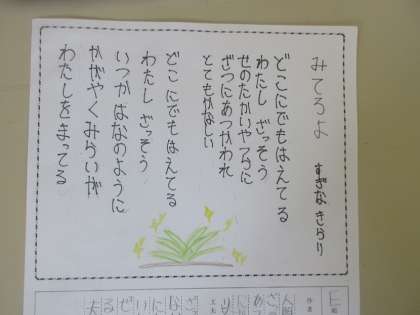 みてろよ
すぎな きらり
どこにでもはえてる
わたし ざっそう
せのたかいやつらに
ざつにあつかわれ
とてもかなしい
どこにでもはえてる
わたし ざっそう
いつかはなのように
かがやくみらいが
わたしをまってる